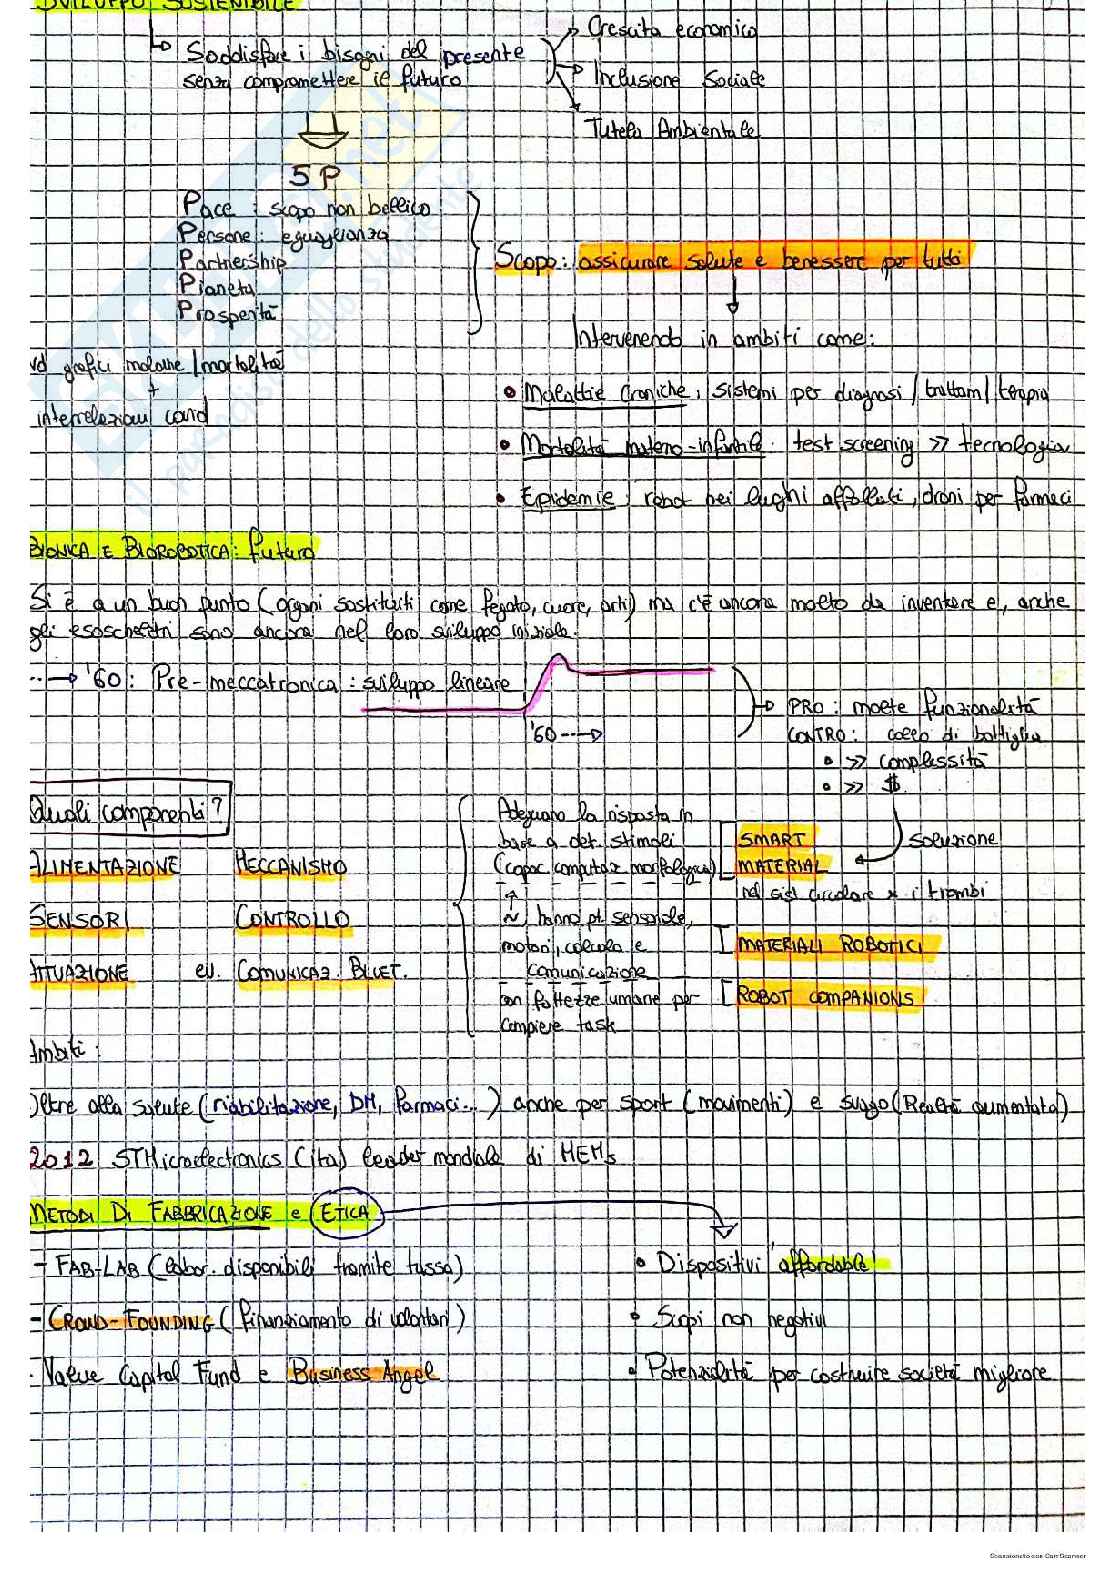 SVILUPPO SOSTENIBILE
Soddisfare i bisogni del presente
senza compromettere il futuro
Crescita economica
Inclusione Sociale
Tutela Ambientale
5 P
Pace : scopo non bellico
Persone: eguaglianza
Partnership
Pianeta
Prosperità
Scopo: assicurare salute e benessere per tutti
Intervenendo in ambiti come:
vd grafici malattie/mortalità
+
interrelazioni covid
• Malattie croniche: sistemi per diagnosi/trattam/terapia
• Mortalità materno-infantile: test screening >> tecnologia
• Epidemie: robot nei luoghi affollati, droni per farmaci
BIONICA E BIOROBOTICA: futuro
Si è a un buon punto (organi sostituiti come fegato, cuore, arti) ma c'è ancora molto da inventare e, anche
gli esoscheletri sono ancora nel loro sviluppo iniziale.
'60: Pre-meccatronica: sviluppo lineare
'60
PRO: molte funzionalità
CONTRO: collo di bottiglia
• >> complessità
• >> $
soluzione
Quali componenti?
ALIMENTAZIONE MECCANISMO
SENSORI CONTROLLO
ATTUAZIONE ev. COMUNICAZ. BILET.
Adeguano la risposta in
base a det. stimoli
(capac computaz morfologica)
SMART
MATERIAL
nel sist circolare x i trombi
~ hanno pt sensoriale,
motori, calcolo e
comunicazione
MATERIALI ROBOTICI
con fattezze umane per
compiere task
ROBOT COMPANIONS
Ambiti:
Oltre alla salute (riabilitazione, DM, farmaci...) anche per sport (movimenti) e svago (Realtà aumentata)
2012 STMicroelectronics (ita) leader mondiale di MEMs
METODI DI FABBRICAZIONE e ETICA
- FAB-LAB (labor. disponibili tramite tassa)
- CROWD-FOUNDING (finanziamento di volontari)
- Value Capital Fund e Business Angel
• Dispositivi 'affordable'
• Scopi non negativi
• Potenzialità per costruire società migliore
Scansionato con CamScanner